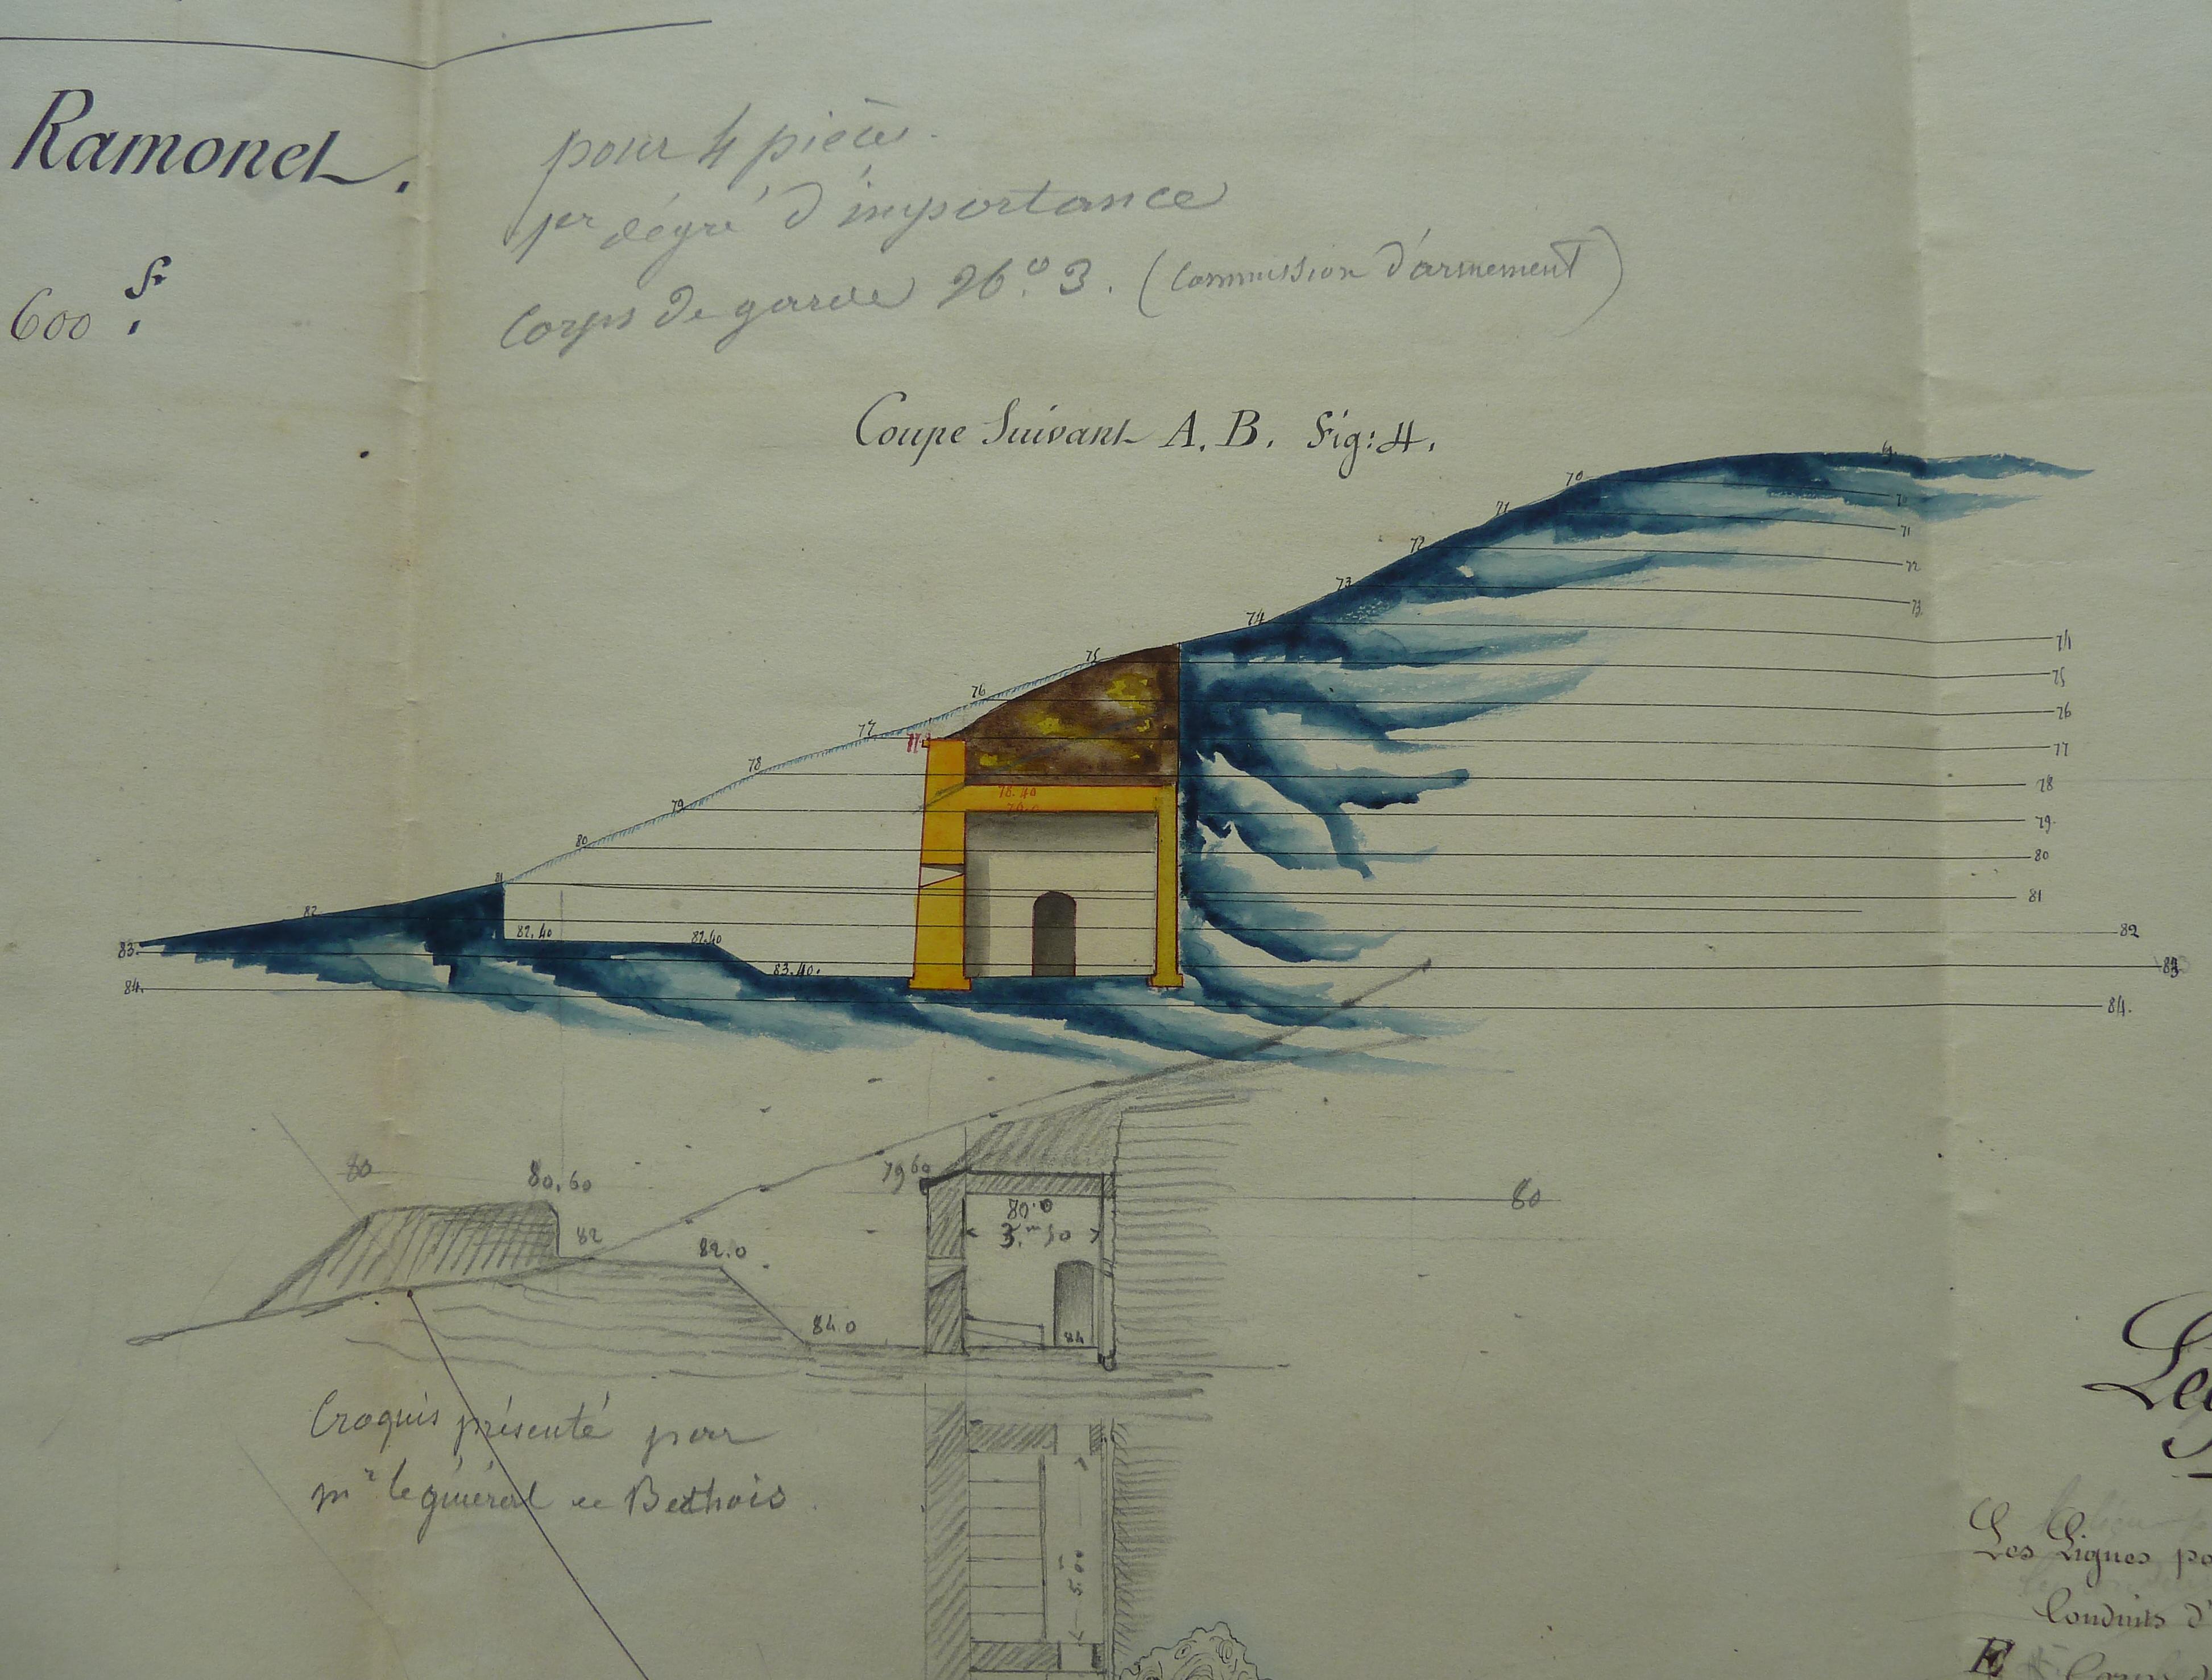 Ramonet.
600 f.
pour 4 pièces.
1er dégré d'importance
Corps de garde 26.° 3. (Commission d'armement)
Coupe Suivant A. B. Fig: 4.
70
71
72
73
74
75
76
77
78
79
80
81
82
83.
84.
82.40
82.40
83.40.
78.40
79.0
70
71
72
73
74
75
76
77
78
79
80
81
82
84.
80
80.60
82
82.0
84.0
79 60
80.0
3.m50
84
80
5.00
Croquis présenté par
mr le général de Bethois.
Les Lignes po
Conduits d'
E